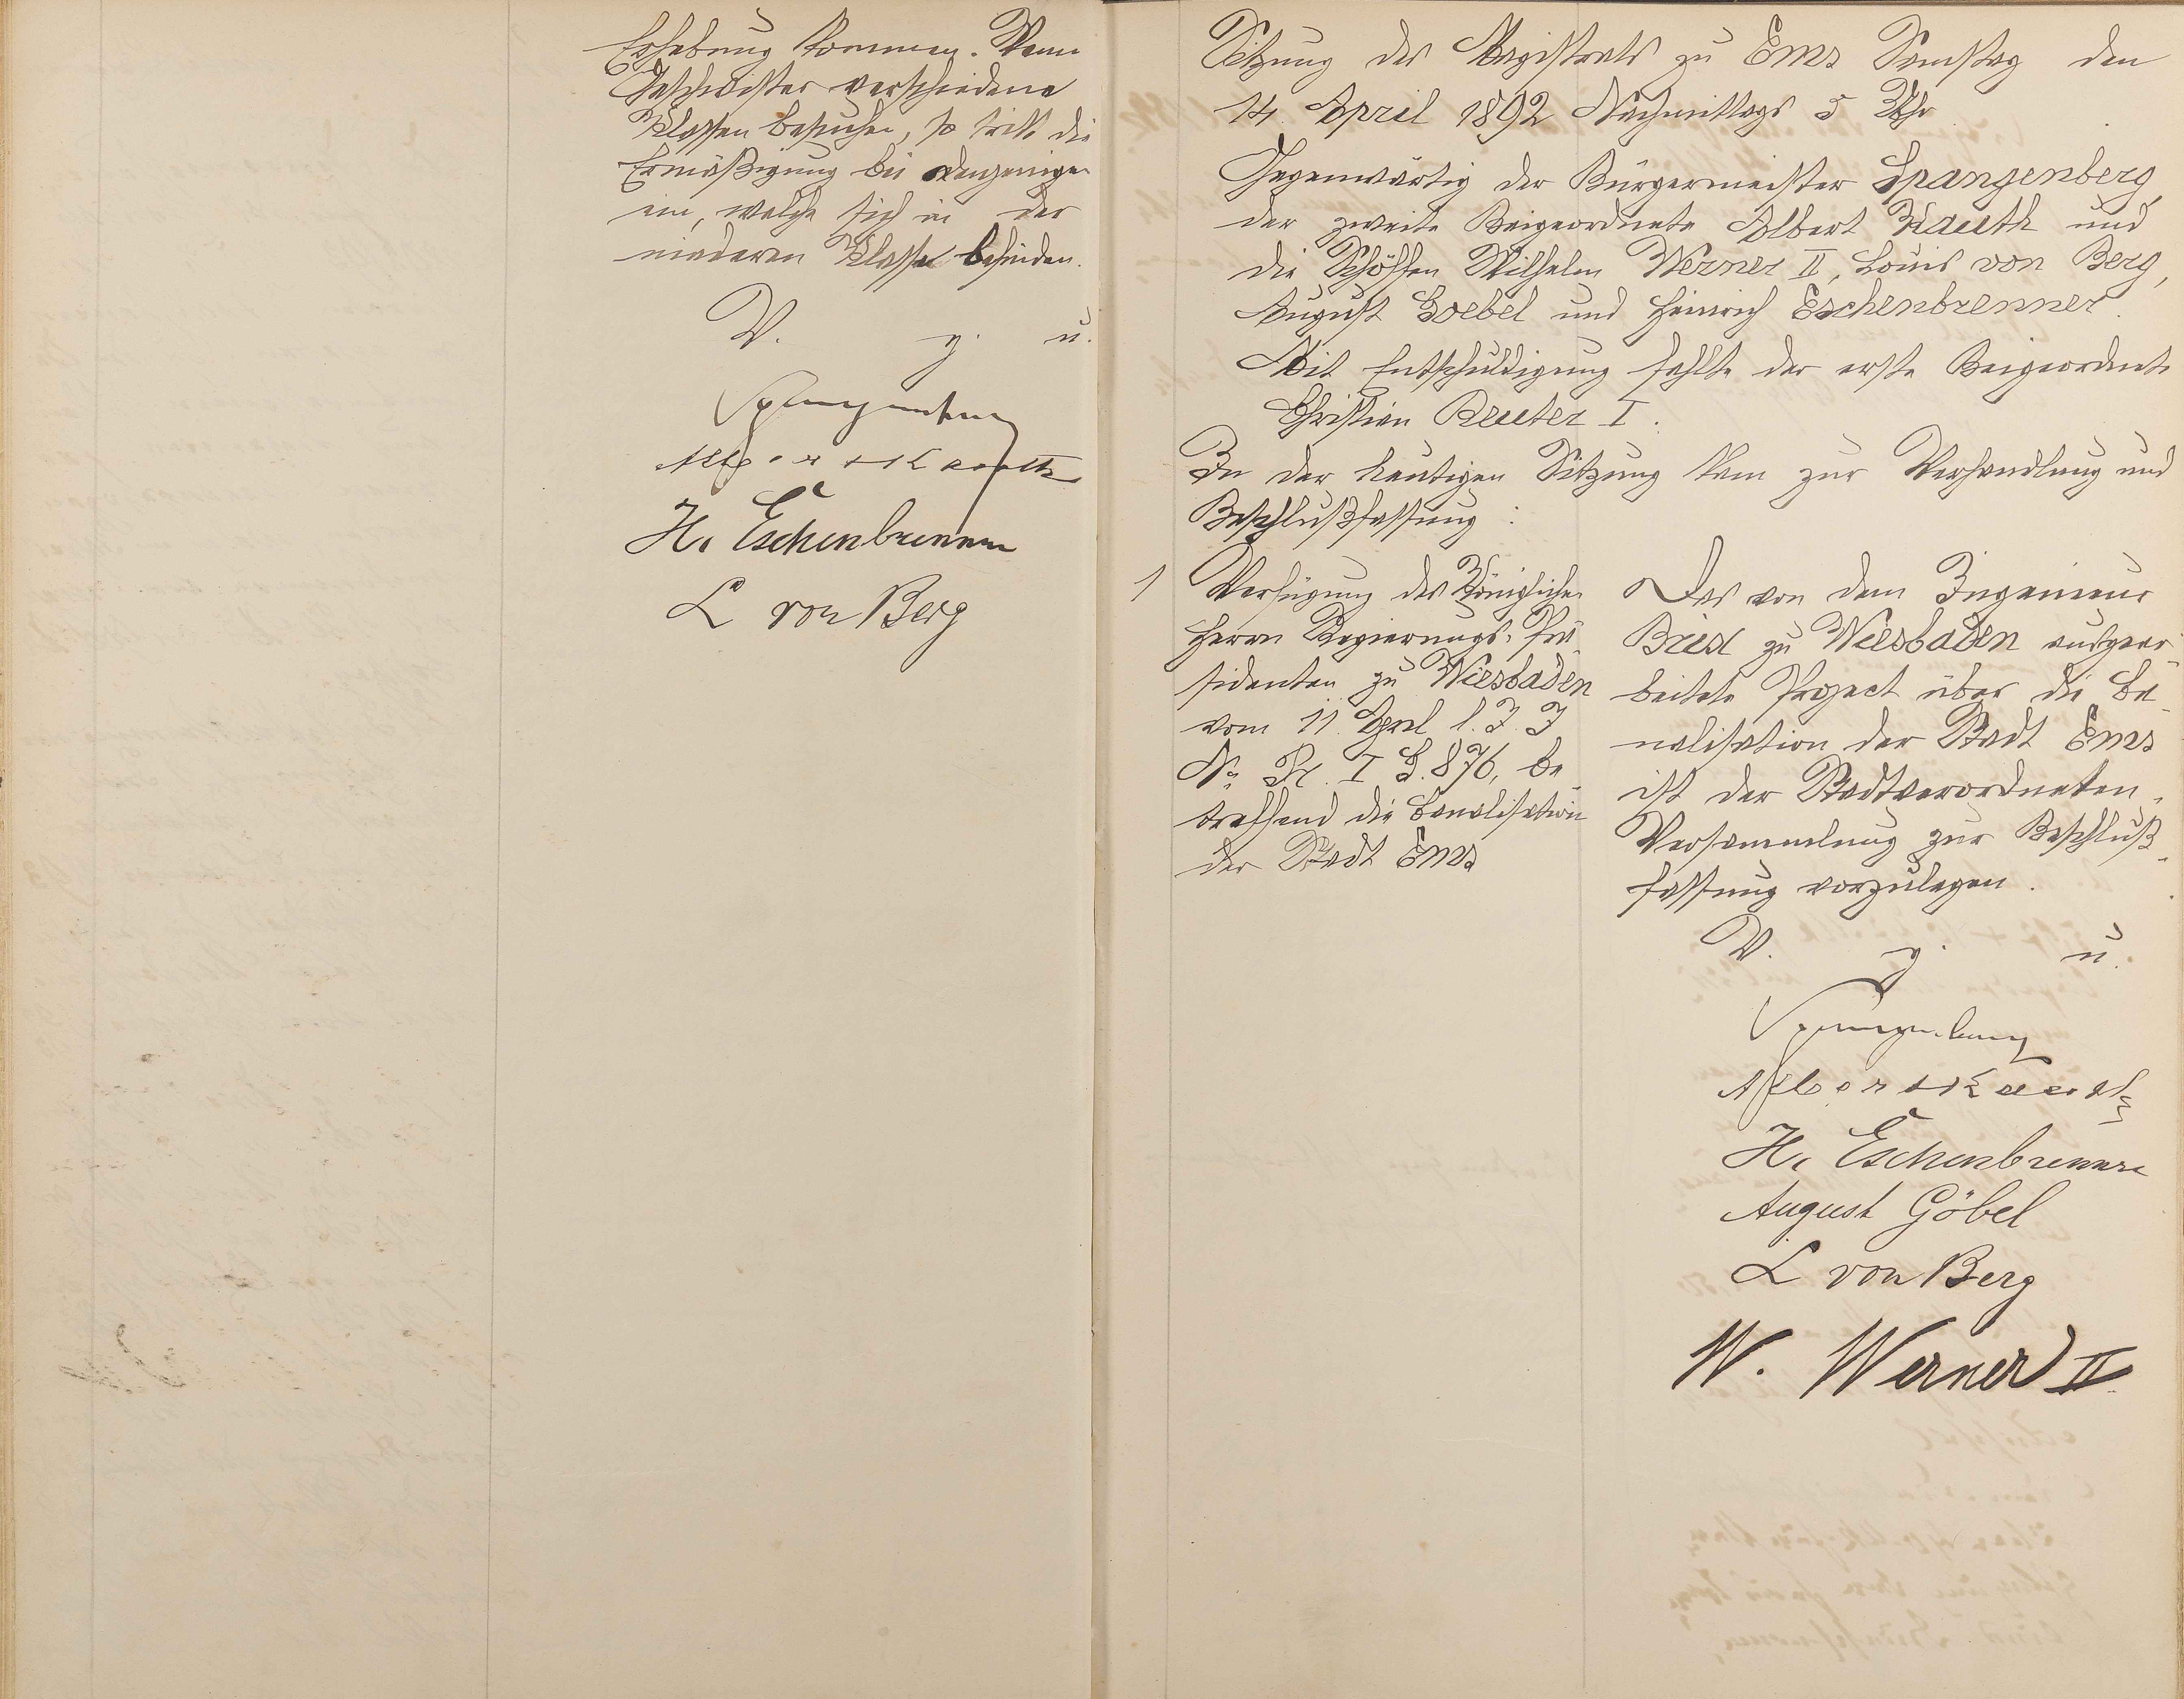 Erhebung kommen. Wenn
Geschwister verschiedene
Klassen besuchen, so tritt die
Ermäßigung bei denjenigen
ein, welche sich in der
niederen Klasse befinden.
V. g. u.
Spangenberg
Albert Kauth
H. Eschenbrenner
L von Berg
Sitzung des Magistrats zu Ems Samstag den
14. April 1892 Nachmittags 5 Uhr
Gegenwärtig der Bürgermeister Spangenberg,
der zweite Beigeordnete Albert Kauth und
die Schöffen Wilhelm Werner II, Louis von Berg,
August Goebel und Heinrich Eschenbrenner.
Mit Entschuldigung fehlte der erste Beigeordnete
Christian Reuter I.
In der heutigen Sitzung kam zur Verhandlung und
Beschlußfassung:
1 Verfügung des Königlichen
Herrn Regierungs-Prä-
sidenten zu Wiesbaden
vom 11. April l. J. J
No Pr. I G. 876, be-
treffend die Canalisation
der Stadt Ems
Das von dem Ingenieur
zu Wiesbaden ausgear-
beitete Project über die Ca-
nalisation der Stadt Ems
ist der Stadtverordneten-
Versammlung zur Beschluß-
fassung vorzulegen.
V. g. u.
Spangenberg
Albert Kauth
H. Eschenbrenner
August Göbel
L von Berg
W. Werner II